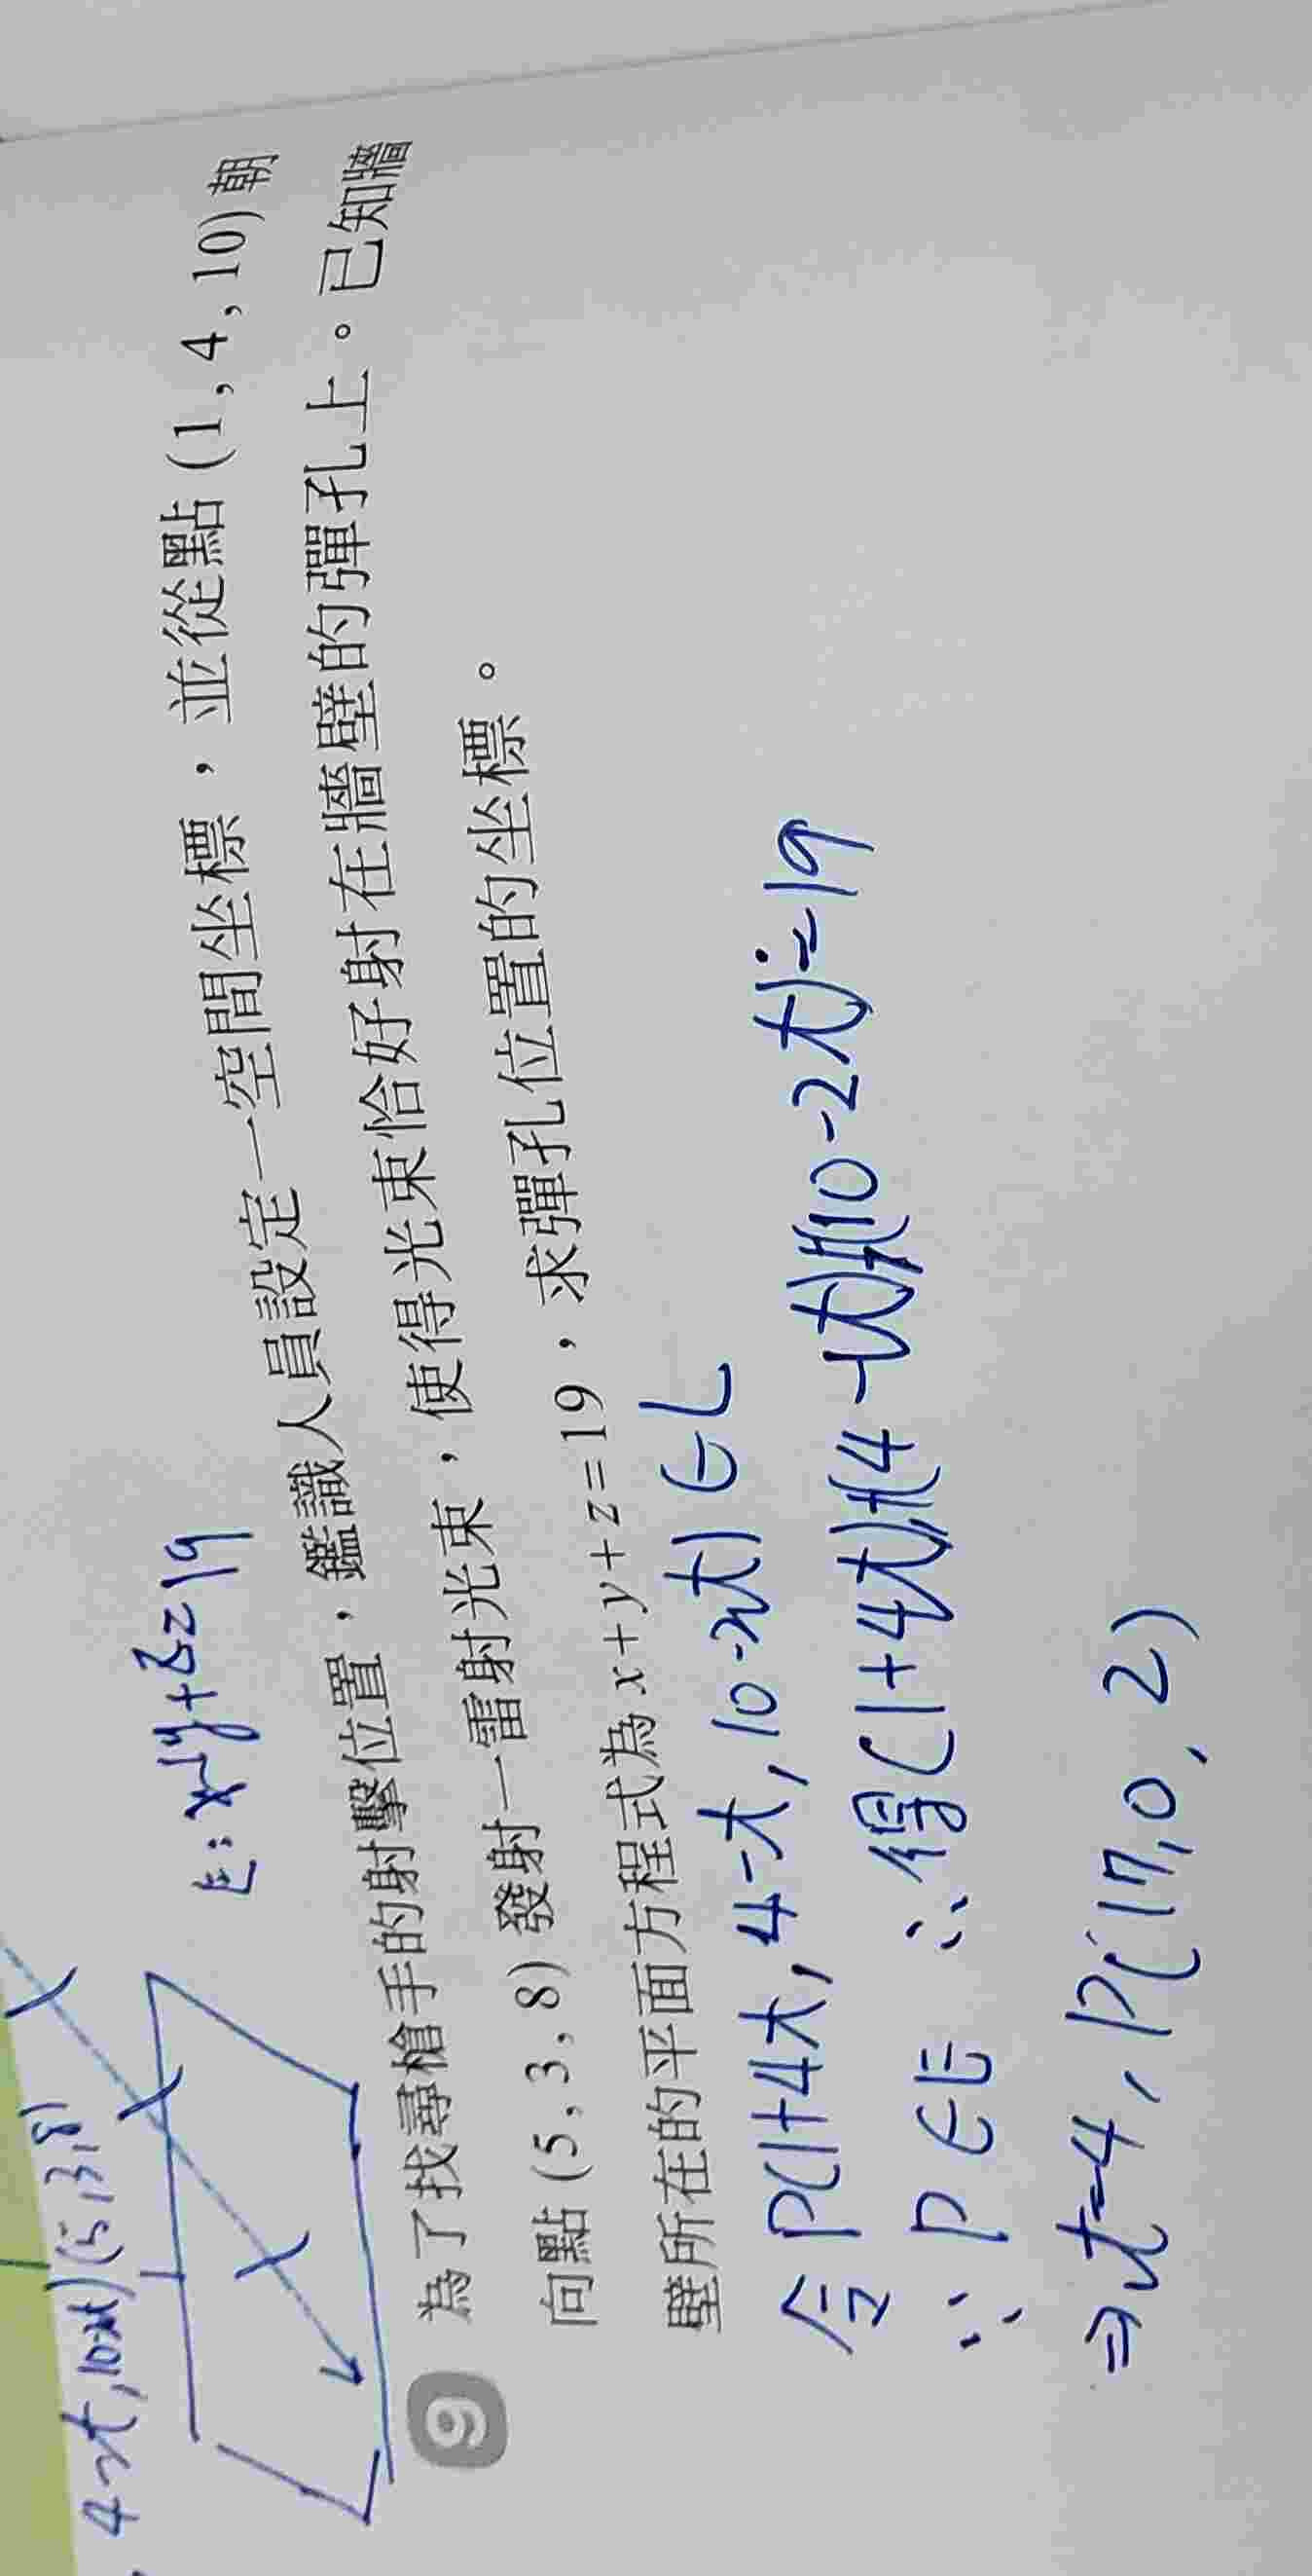 4-t, 10-2t) (5,3,8)
E: x+y+z=19
9 為了找尋槍手的射擊位置，鑑識人員設定一空間坐標，並從點 (1, 4, 10) 朝
向點 (5, 3, 8) 發射一雷射光束，使得光束恰好射在牆壁的彈孔上。已知牆
壁所在的平面方程式為 x+y+z=19，求彈孔位置的坐標。
令 P(1+4t, 4-t, 10-2t) ∈ L
∵ P ∈ E ∴ 得 (1+4t)+(4-t)+(10-2t)=19
⇒ t=4, P(17, 0, 2)